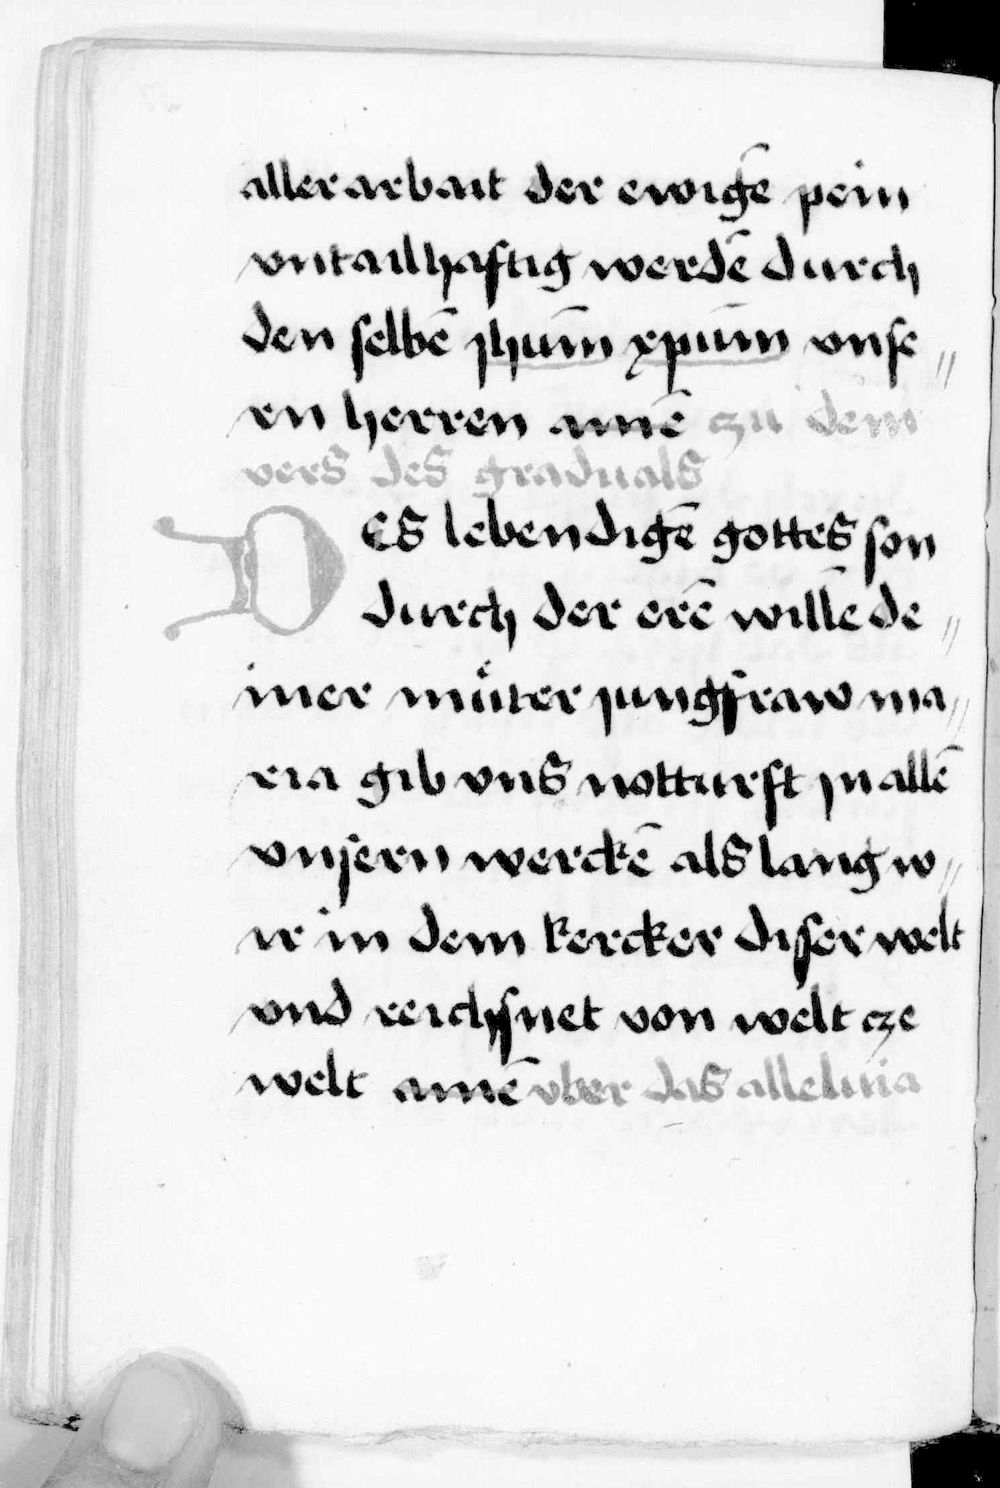 aller arbait der ewigē pein
vntailhaftig werdē durch
den selbē jhum̄ xpum̄ vnse〃
ren herren amē czu dem
vers des graduals
Des lebendigē gottes son
durch der erē willē de〃
iner muͤter jungfraw ma〃
ria gib vns notturft jn allē
vnsern werckē als lang w〃
ir in dem kercker diser welt
vnd reichsnet von welt cze
welt amē vber das alleluia